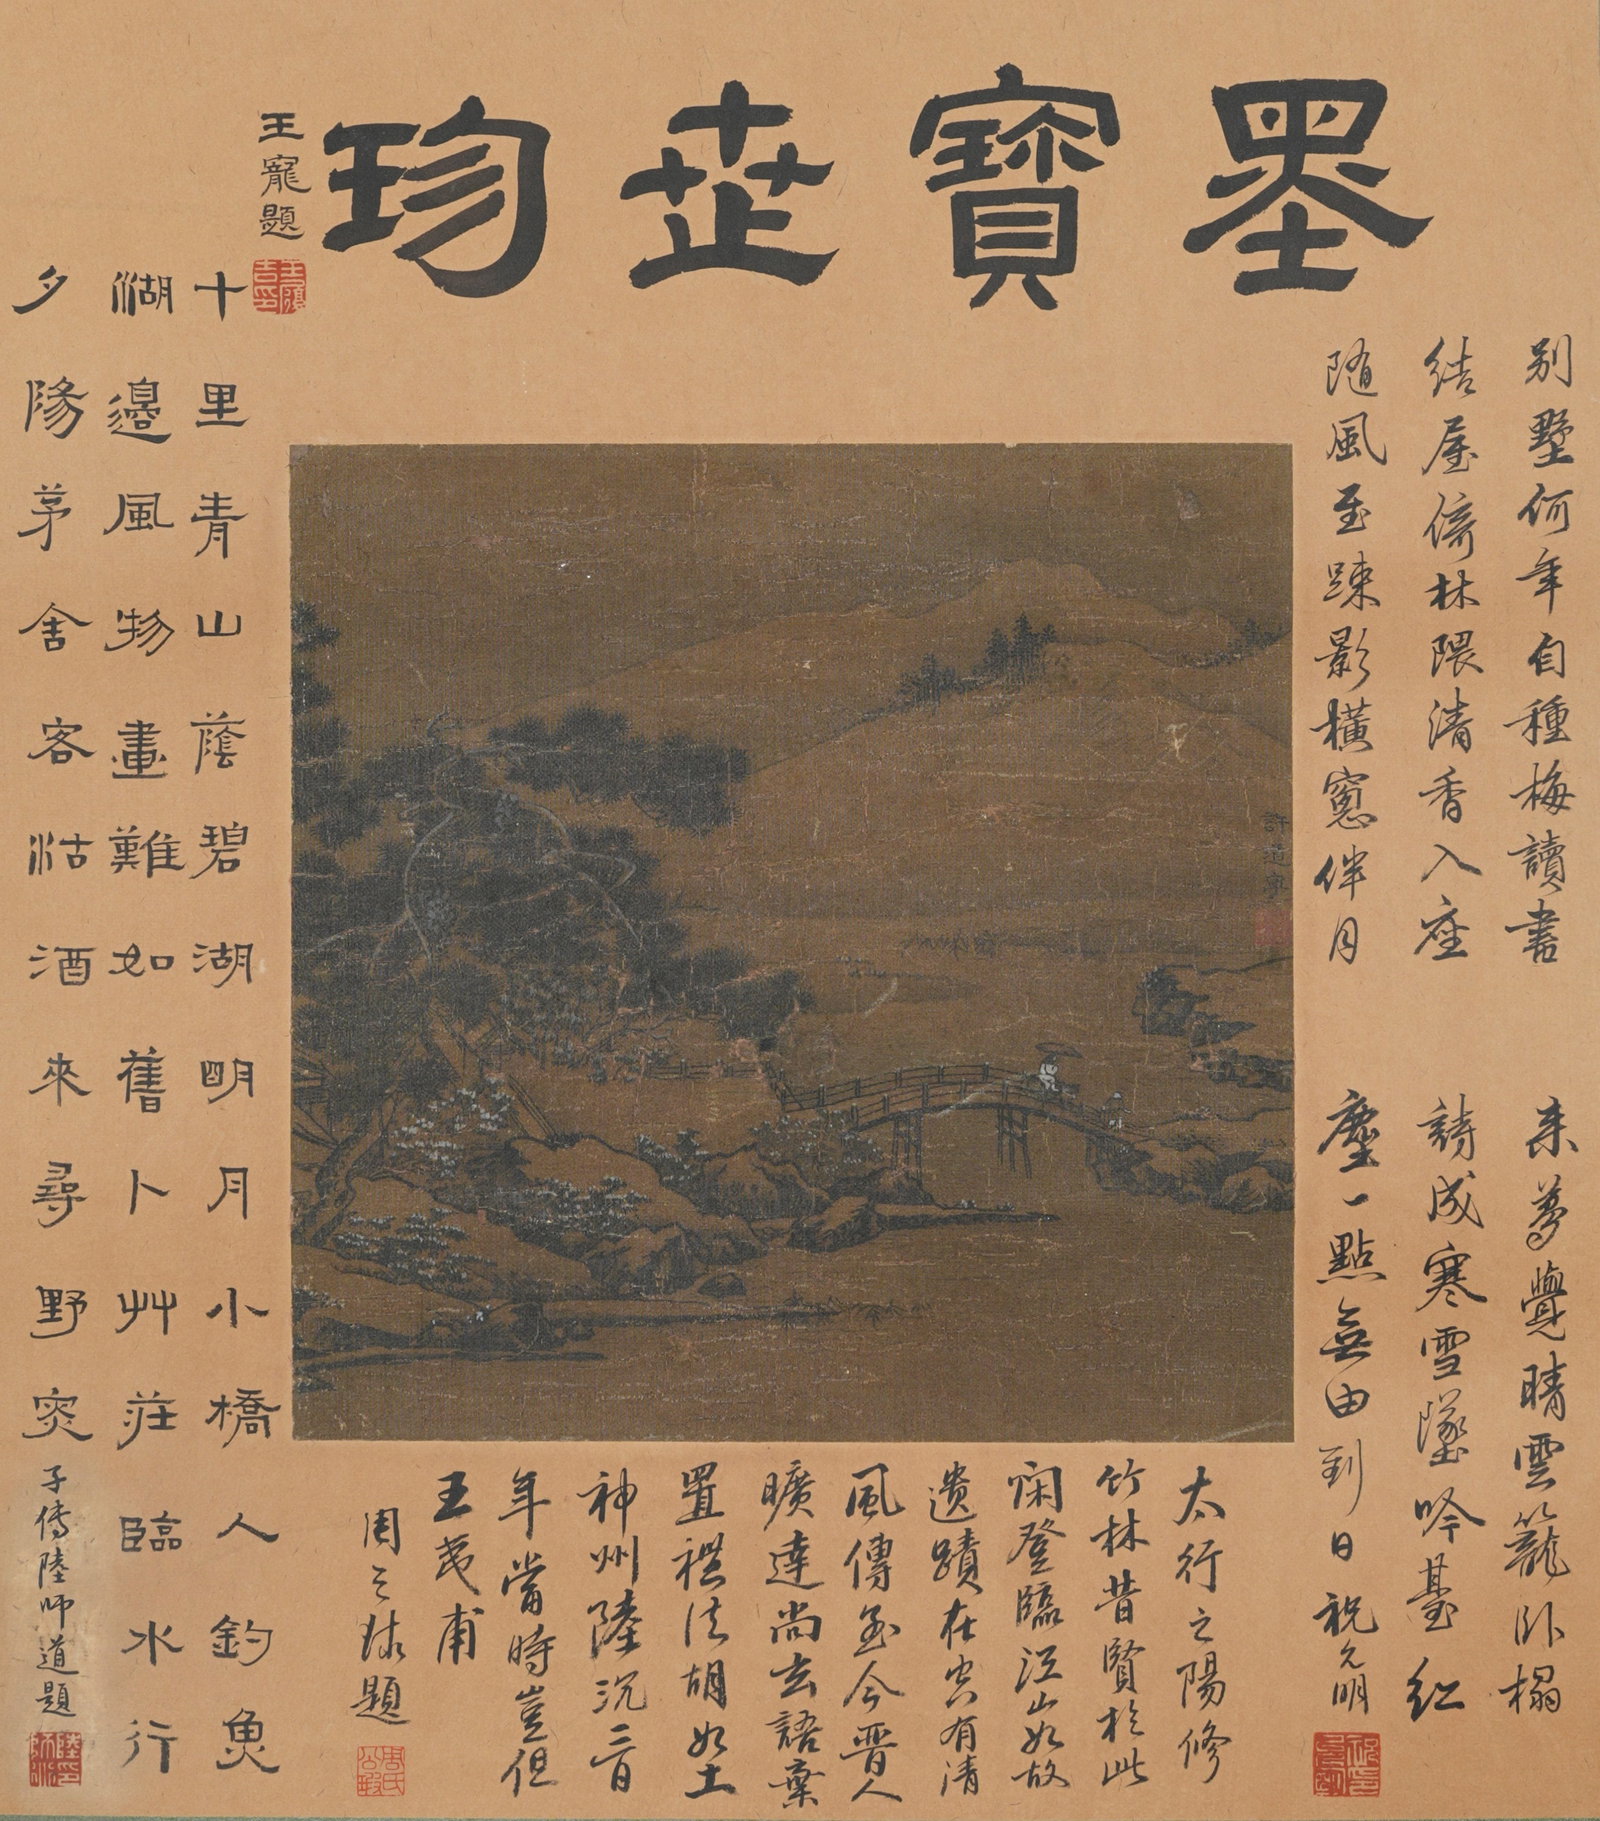 墨寶世珍
王寵題
别墅何年自種梅讀書
來夢覺晴雲籠卧榻
結屋倚林隈清香入座
詩成寒雪墜吟臺紅
隨風至踈影橫窻伴月
塵一點無由到日祝允明
許道寧
太行之陽修
竹林昔賢於此
閑登臨江山如故
遺蹟在空有清
風傳至今晉人
曠達尚玄語棄
置禮法胡如土
神州陸沉二百
年當時豈但
王夷甫
周之球題
十里青山蔭碧湖明月小橋人釣魚
湖邊風物畫難如舊卜艸莊臨水行
夕陽茅舍客沽酒來尋野
子傳陸師道題